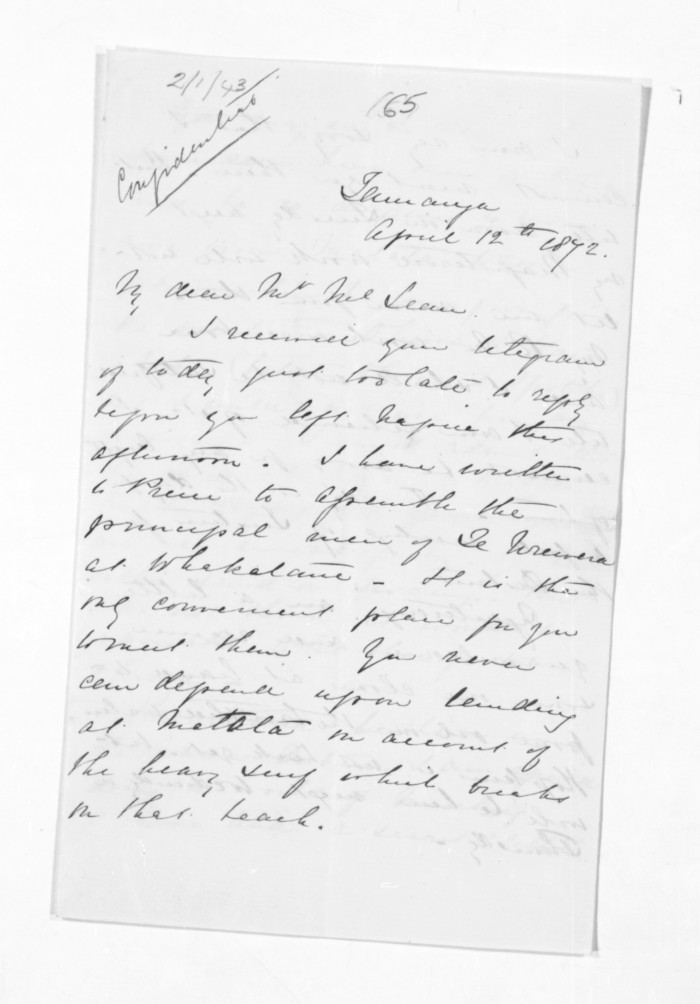 2/1/43/
165
Confidential
Tauranga
April 12th 1872.
My dear Mr McLean.
I received your telegram
of today just too late to reply
before you left Napier this
afternoon. I have written
to Preece to assemble the
principal men of Te Urewera
at Whakatane - It is the
only convenient place for you
to meet them. You never
can depend upon landing
at Matata on account of
the heavy surf which breaks
on that beach.